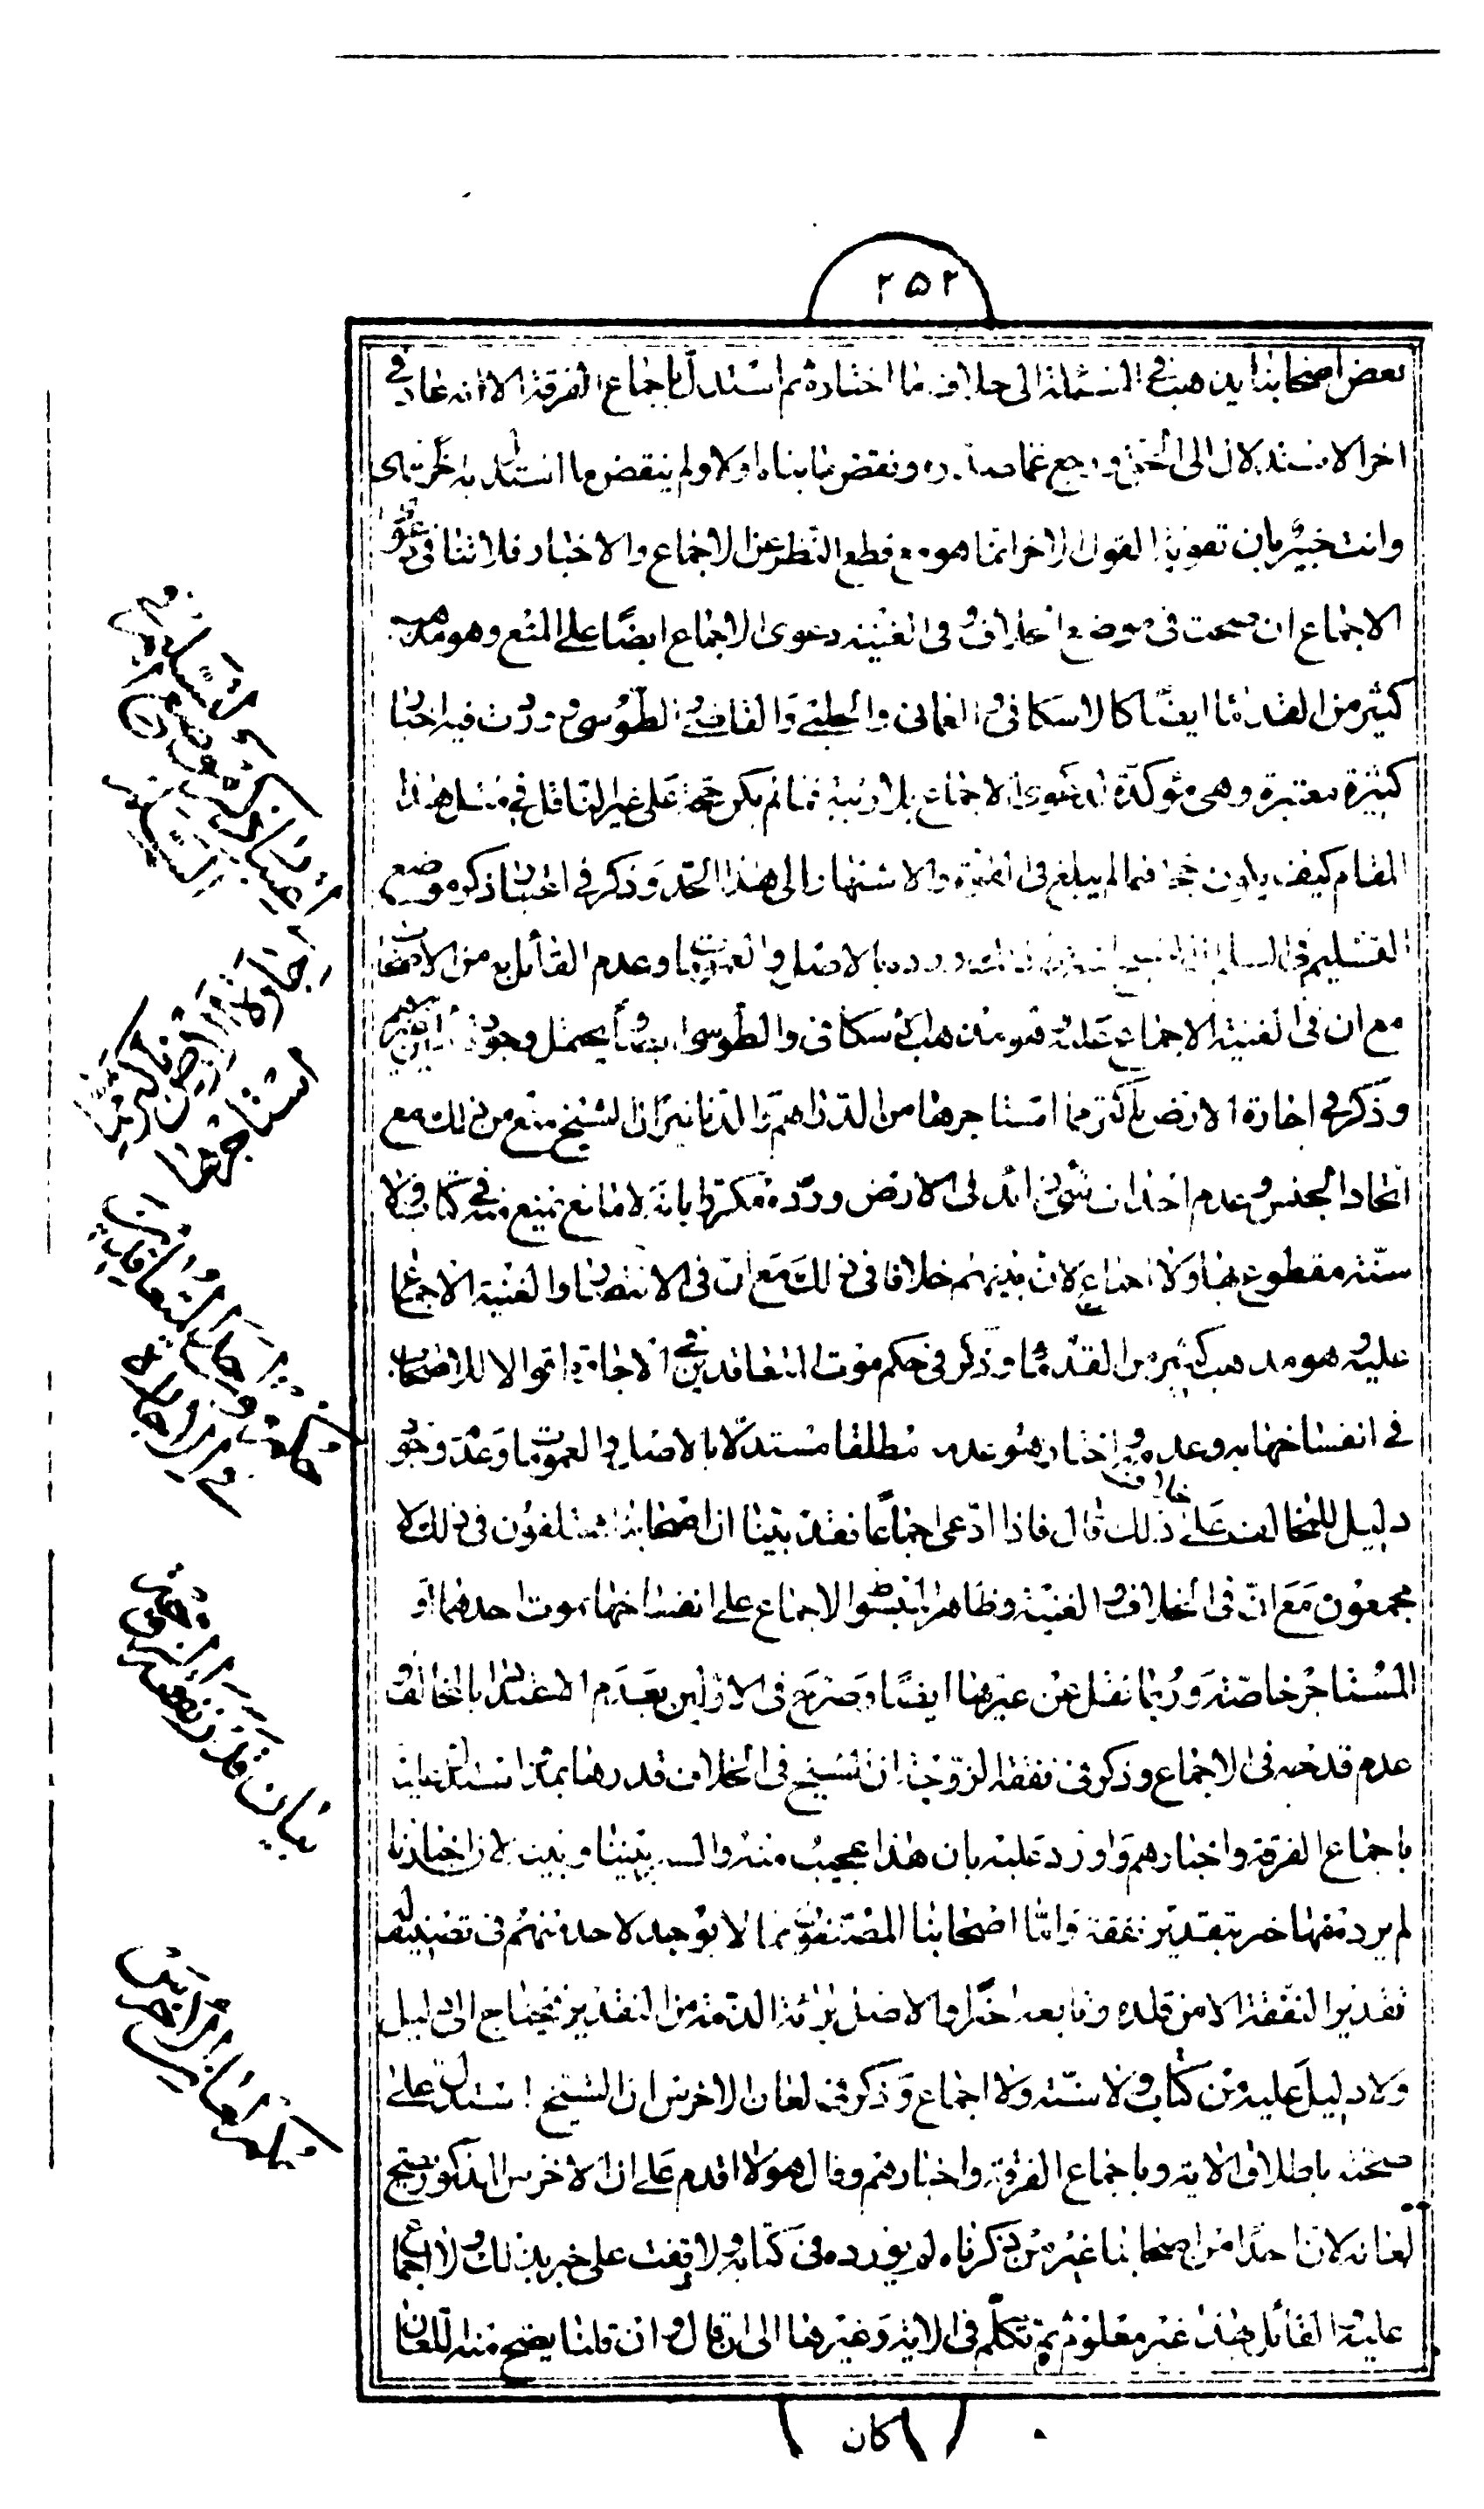 ۲۵۲
بعض اصحابنا يذهب في المسئلة الى خلاف ما اختاره ثم استدل باجماع الفرقة الا انه عاد في
اخر الاستدلال الى الحق ورجع عما صدره ونقض ما بناه اولا ولم ينقض ما استدل به
وانت خبير بان تقوية القول الاخر انما هو مع قطع النظر عن الاجماع والاخبار فلا تنافي دعوى
الاجماع ان صحت في موضع الخلاف و في الغنية دعوى الاجماع ايضا على المنع وهو مذهب
كثير من القدماء ايضا كالاسكافي و العماني والحلبي والقاضي و الطوسي و وردت فيه اخبار
كثيرة معتبرة وهي مؤكدة لدعوى الاجماع بلا ريبة فما لم يكن حجة على غير الناقل في مثل هذا
المقام كيف يكون حجة فيما لم يبلغ في القوة والاشتهار الى هذا الحد وذكر في اعتبار ذكر موضع
التسليم في السلم ان الشيخ ورده بالاصل و العمومات وعدم القائل به من الاصحاب
مع ان في الغنية الاجماع عليه وهو مذهب الاسكافي والطوسي ايضا يحتمل وجود
وذكر في اجارة الارض باكثر مما استاجرها من الدراهم والدنانير ان الشيخ منع من ذلك مع
اتحاد الجنس و عدم احداث شئ زائد في الارض ورده مكررا بانه لا مانع يمنع منه في كتاب ولا
سنة مقطوع بها ولا اجماع لان بينهم خلافا في ذلك مع ان في الانتصار والغنية الاجماع
عليه هو مذهب كثير من القدماء وذكر في حكم موت المتعاقدين في الاجارة اقوالا للاصحاب
في انفساخها به وعدمه و اختار هو عدمه مطلقا مستدلا بالاصل و العمومات وعدم وجود
دليل للمخالف على خلافه ذلك قال فاذا ادعى اجماعا فقد بينا ان اصحابنا مختلفون في ذلك لا
مجمعون مع ان في الخلاف و الغنية وظاهر المبسوط الاجماع على انفساخها بموت احدهما او
المستاجر خاصة وربما نقل عن غيرها ايضا وصرح في الاولين بعدم الاعتداد بالمخالف و
عدم قدحه في الاجماع وذكر في نفقة الزوجة ان الشيخ في الخلاف قدرها بمد استدل عليه
باجماع الفرقة واخبارهم واورد عليه بان هذا عجيب منه والسبر بيننا وبينه لان اخبارنا
لم يرد منها خبر بتقدير نفقة واما اصحابنا المصنفون فما لا يوجد لاحد منهم في تصنيف له
تقدير النفقة الا من قلده وتابعه اخيرا والاصل برائة الذمة من التقدير فيحتاج الى دليل
ولا دليل عليه من كتاب ولا سنة ولا اجماع وذكر في لعان الاخرس ان الشيخ استدل على
صحته باطلاق الاية وباجماع الفرقة واخبارهم وقال هو لا اقدم على ان الاخرس المذكور يصح
لعانه لان احدا من اصحابنا غير من ذكرناه لم يورده في كتابه و لا وقفت على خبر بذلك و لا اجماع
عليه و القائل بهذا غير معلوم ثم تكلم في الاية وغيرها الى ان قال و ان قلنا يصح منه اللعان
كان
اجارة الارض باكثر مما
استاجرها
حكم موت المتعاقدين
بيان قدر نفقة
حكم لعان الاخرس